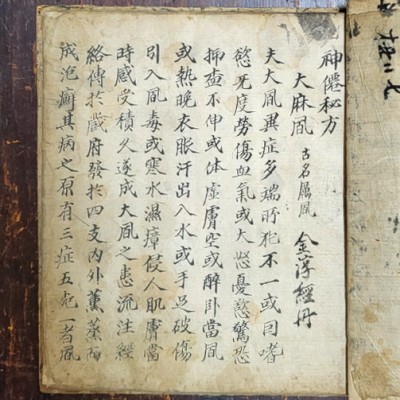 神僊秘方
大麻凮 古名属凮 金浮經丹
夫大凮異症多瑞所犯不一或因嗜
慾无度勞傷血氣或大怒憂慾驚恐
抑不伸或体虛膚空或醉卧當凮
或熱晚衣脹汗出入水或手足破傷
引入凮毒或寒水濕瘴侵人肌膚當
時感受積久遂成大凮之患流注經
絡傳於臟府發於四支内外薰蒸而
成疮癬其病之原有三症五死一者凮